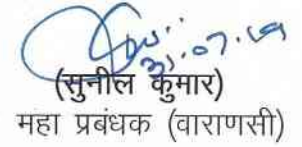 31.07.19
(सुनील कुमार)
महा प्रबंधक (वाराणसी)